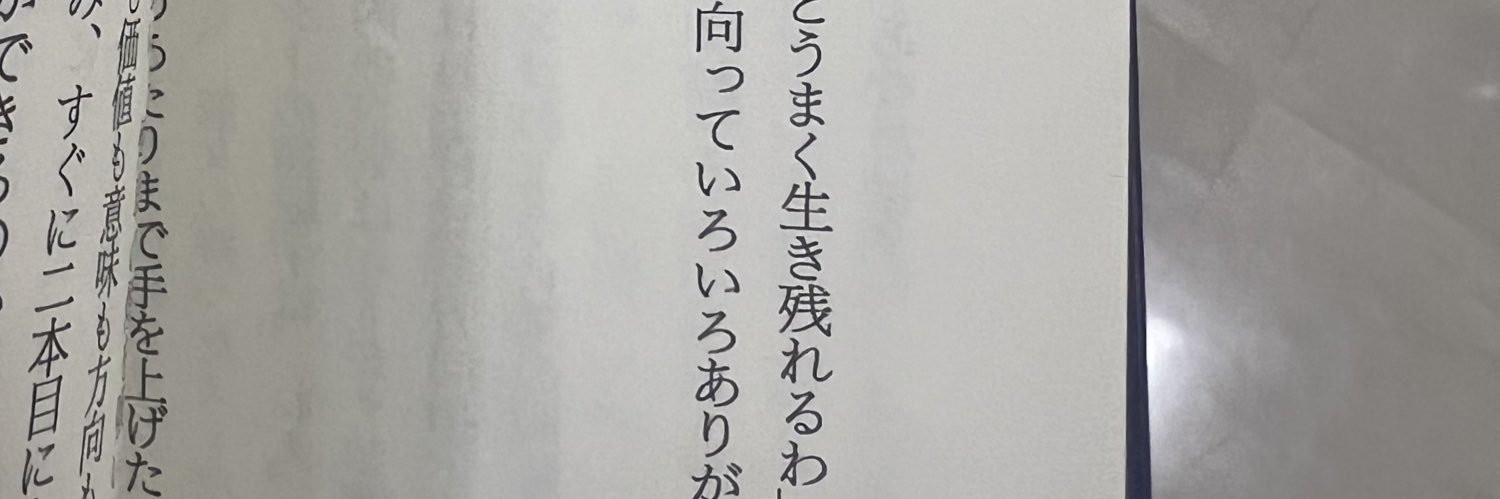 とうまく生き残れるわ
向っていろいろありが
たりまで手を上げた
価値も意味も方向も
み、すぐに二本目に
ができるの